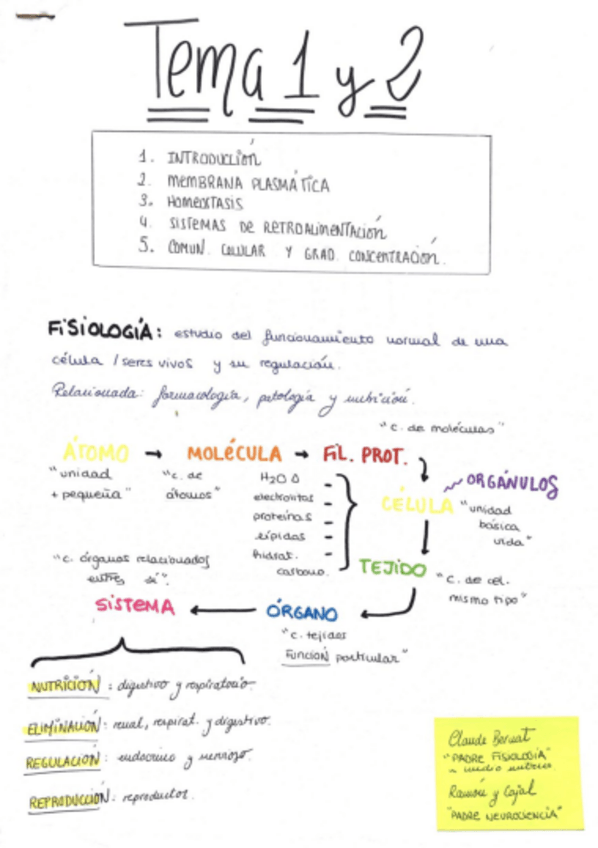 Tema 1 y 2
1. INTRODUCCIÓN
2. MEMBRANA PLASMÁTICA
3. HOMEOSTASIS
4. SISTEMAS DE RETROALIMENTACIÓN
5. COMUN. CELULAR Y GRAD. CONCENTRACIÓN.
FISIOLOGÍA: estudio del funcionamiento normal de una
célula / seres vivos y su regulación.
Relacionada: farmacología, patología y nutrición.
"c. de moléculas"
ÁTOMO → MOLÉCULA → FIL. PROT.
"unidad
+ pequeña"
"c. de
átomos"
H2O
electrolitos -
proteínas -
lípidos -
hidrat. -
carbono.
ORGÁNULOS
CÉLULA
"unidad
básica
vida"
TEJIDO
"c. de cél.
mismo tipo"
"c. órganos relacionados
entre sí".
SISTEMA ← ÓRGANO
"c. tejidos
FUNCIÓN particular"
NUTRICIÓN: digestivo y respiratorio.
ELIMINACIÓN: renal, respirat. y digestivo.
REGULACIÓN: endocrino y nervioso.
REPRODUCCIÓN: reproductor.
Claude Bernat
"PADRE FISIOLOGÍA"
~ medio interno.
Ramón y Cajal
"PADRE NEUROCIENCIA"